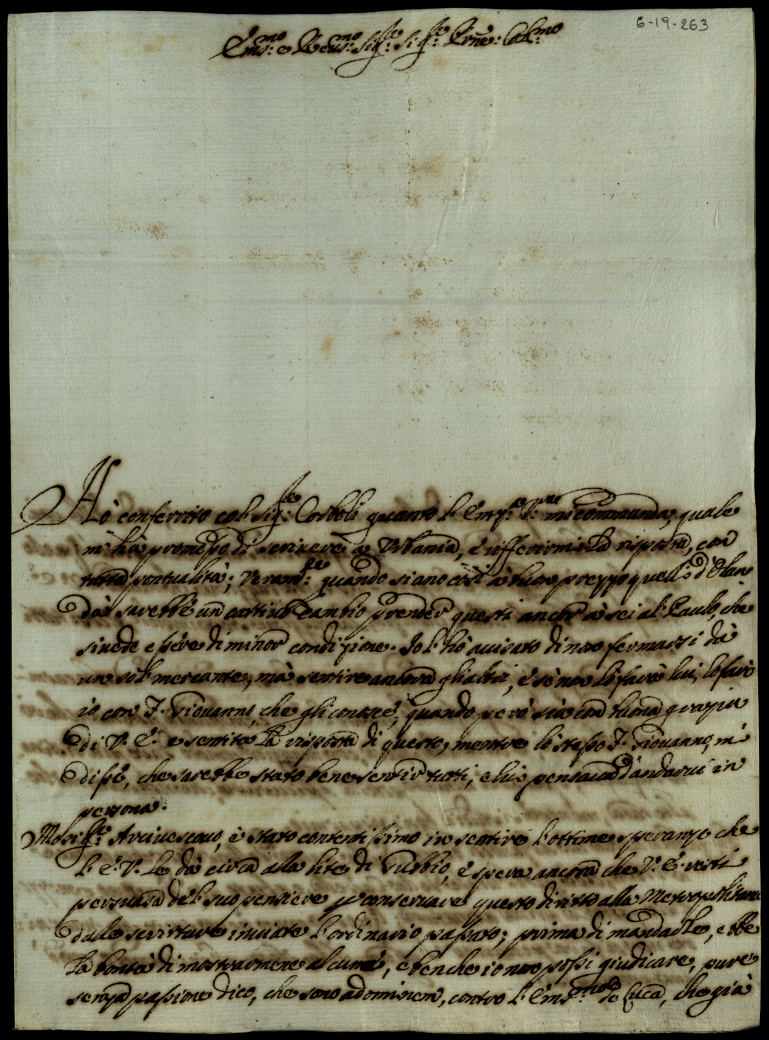 6-19-263
Em:mo e Reu:mo Sig:re Sig:re Prñe: Col:mo
Hò conferito col Sig:re Corboli quanto l'Em:za V:ra mi commanda, quale
m'hà promesso di scrivere à Urbania, e riferirmi la risposta, con
tutta pontualità; Veram:te quando siano così à buon prezzo quelli d'Olan
da sarebbe un cattivo cambio prender questi anche à sei al Paulo, che
si uede essere di minor condizione. Io l'hò auisato di non fermarsi dà
un sol mercante, mà sentire ancora gli altri, e se non lo farà lui, lo farò
io con F. Giouanni, che gli conosce, quando però sia con buona grazia
di V. E. e sentita la risposta di questo, mentre lo stesso F. Giouanni, mi
disse, che sarebbe stato bene sentir tutti, e lui pensaua d'andarui in
persona.
Mons:re Arciuescouo, è stato contentissimo in sentire l'ottime speranze che
l'E. V. le dà circa alla lite di Gubbio, e spera ancora che V. E. resti
persuasa del suo pensiere p conseruare questo diritto alla Metropolitana
dalle scritture inuiate l'ordinario passato; prima di mandarle, ebbe
la bontà di mostrarmene alcune, e benche io non possi giudicare, pure
senza passione dico, che sono ad hominem, contro l'Em:mo de Luca, che già